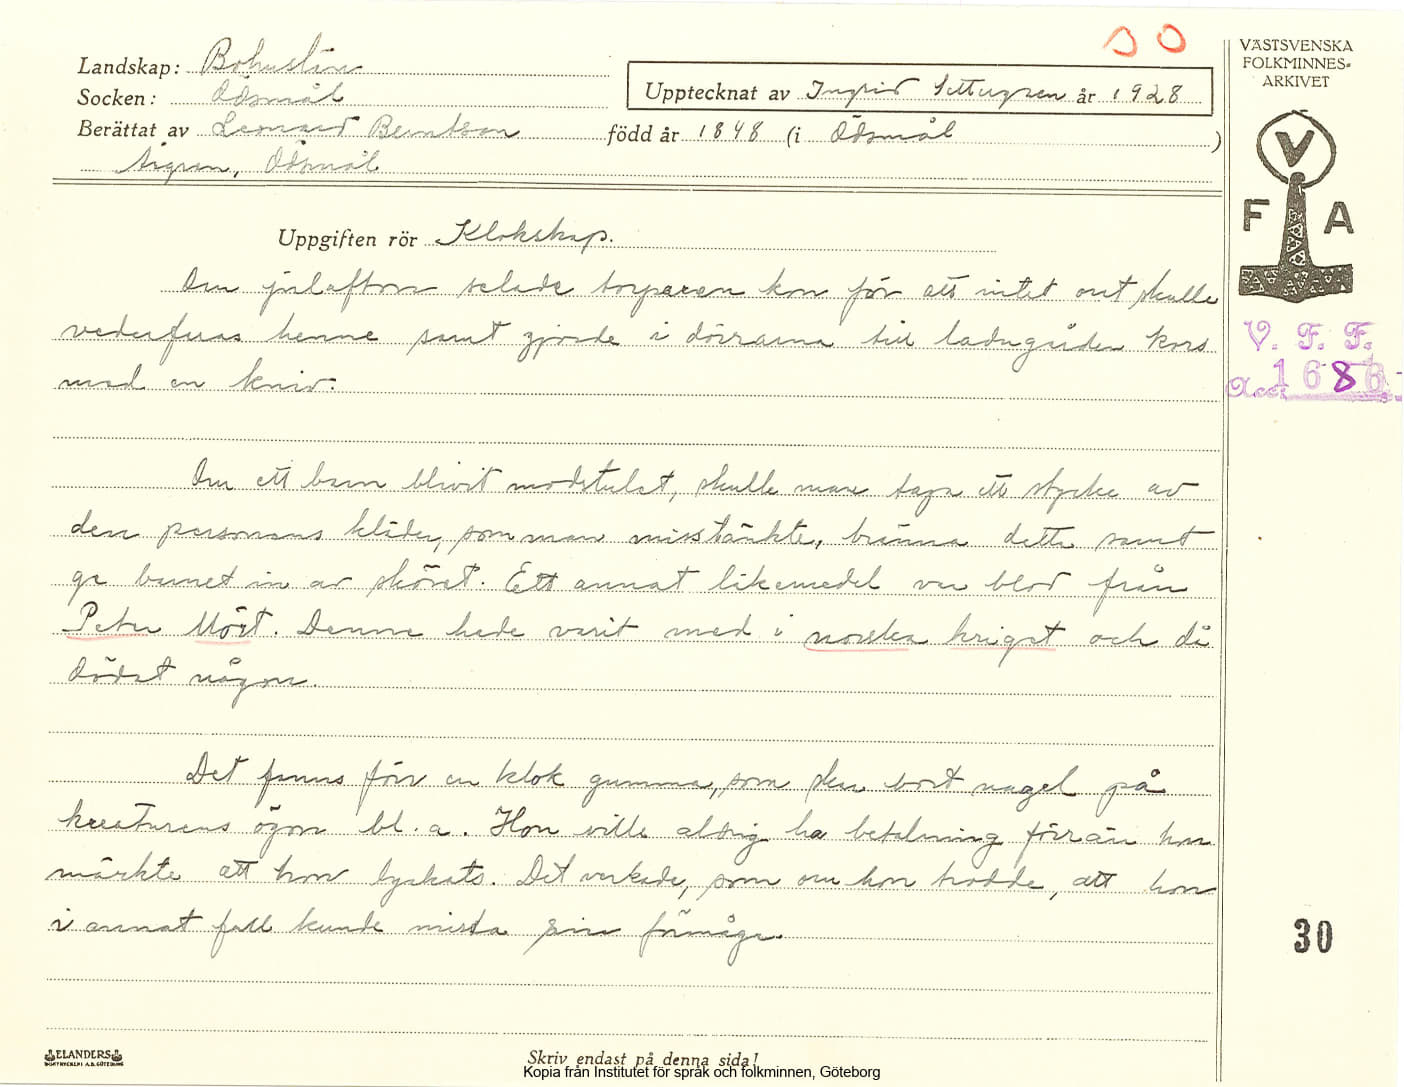 Landskap: Bohuslän
Socken: Ödsmål
Upptecknat av Ingrid år 1928
Berättat av Leonard Berntson född år 1848 (i Ödsmål )
Ödsmål
VÄSTSVENSKA
FOLKMINNES-
ARKIVET
V
F A
V. F. F.
Acc: 1686
Uppgiften rör Klokskap.
Om julafton selade torparen kon för att intet ont skulle
vederfaras henne samt gjorde i dörrarna till ladugården kors
med en kniv.
Om ett barn blivit modstulet, skulle man taga ett stycke av
den persons kläder, som man misstänkte, bränna detta samt
ge barnet in av sköret. Ett annat läkemedel var blod från
Peter Mört. Denne hade varit med i norska kriget och då
dödat någon.
Det fanns förr en klok gumma, som skar bort nagel på
kreaturens ögon bl. a. Hon ville aldrig ha betalning förrän hon
märkte att hon lyckats. Det verkade, som om hon trodde, att hon
i annat fall kunde mista sin förmåga.
30
ELANDERS
BOKTRYCKERI A.B. GÖTEBORG
Skriv endast på denna sida!
Kopia från Institutet för språk och folkminnen, Göteborg